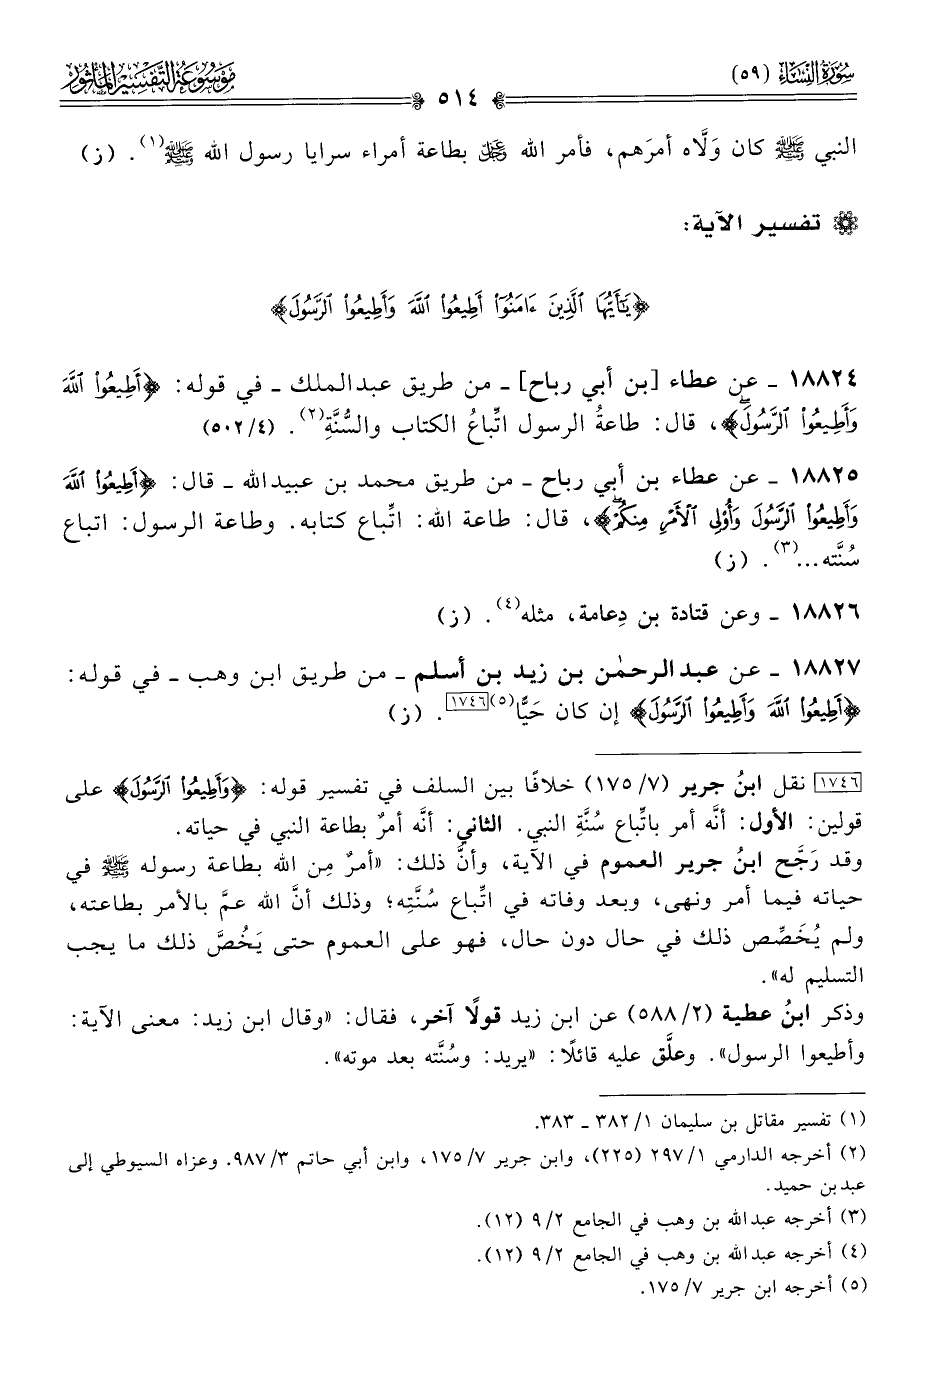 سُورَةُ النِّسَاءِ (٥٩)
٥١٤
مَوْسُوعَةُ التَّفْسِيرِ المَأْثُورِ
النبي ﷺ كان وَلَّاه أمرَهم، فأمر الله ﷿ بطاعة أمراء سرايا رسول الله ﷺ(١). (ز)
تفسير الآية:
﴿يَٰٓأَيُّهَا ٱلَّذِينَ ءَامَنُوٓا۟ أَطِيعُوا۟ ٱللَّهَ وَأَطِيعُوا۟ ٱلرَّسُولَ﴾
١٨٨٢٤ ـ عن عطاء [بن أبي رباح] ـ من طريق عبدالملك ـ في قوله: ﴿أَطِيعُوا۟ ٱللَّهَ
وَأَطِيعُوا۟ ٱلرَّسُولَ﴾، قال: طاعةُ الرسول اتِّباعُ الكتاب والسُّنَّةِ(٢). (٤/ ٥٠٢)
١٨٨٢٥ ـ عن عطاء بن أبي رباح ـ من طريق محمد بن عبيدالله ـ قال: ﴿أَطِيعُوا۟ ٱللَّهَ
وَأَطِيعُوا۟ ٱلرَّسُولَ وَأُو۟لِى ٱلْأَمْرِ مِنكُمْ﴾، قال: طاعة الله: اتِّباع كتابه. وطاعة الرسول: اتباع
سُنَّته...(٣). (ز)
١٨٨٢٦ ـ وعن قتادة بن دِعامة، مثله(٤). (ز)
١٨٨٢٧ ـ عن عبدالرحمٰن بن زيد بن أسلم ـ من طريق ابن وهب ـ في قوله:
﴿أَطِيعُوا۟ ٱللَّهَ وَأَطِيعُوا۟ ٱلرَّسُولَ﴾ إن كان حَيًّا(٥)[١٧٤٦]. (ز)
[١٧٤٦] نقل ابنُ جرير (٧/ ١٧٥) خلافًا بين السلف في تفسير قوله: ﴿وَأَطِيعُوا۟ ٱلرَّسُولَ﴾ على
قولين: الأول: أنَّه أمر باتِّباع سُنَّةِ النبي. الثاني: أنَّه أمرٌ بطاعة النبي في حياته.
وقد رَجَّح ابنُ جرير العموم في الآية، وأنَّ ذلك: «أمرٌ مِن الله بطاعة رسوله ﷺ في
حياته فيما أمر ونهى، وبعد وفاته في اتِّباع سُنَّتِه؛ وذلك أنَّ الله عمَّ بالأمر بطاعته،
ولم يُخَصِّص ذلك في حال دون حال، فهو على العموم حتى يَخُصَّ ذلك ما يجب
التسليم له».
وذكر ابنُ عطية (٢/ ٥٨٨) عن ابن زيد قولًا آخر، فقال: «وقال ابن زيد: معنى الآية:
وأطيعوا الرسول». وعلَّق عليه قائلًا: «يريد: وسُنَّته بعد موته».
(١) تفسير مقاتل بن سليمان ١/ ٣٨٢ ـ ٣٨٣.
(٢) أخرجه الدارمي ١/ ٢٩٧ (٢٢٥)، وابن جرير ٧/ ١٧٥، وابن أبي حاتم ٣/ ٩٨٧. وعزاه السيوطي إلى
عبد بن حميد.
(٣) أخرجه عبدالله بن وهب في الجامع ٢/ ٩ (١٢).
(٤) أخرجه عبدالله بن وهب في الجامع ٢/ ٩ (١٢).
(٥) أخرجه ابن جرير ٧/ ١٧٥.